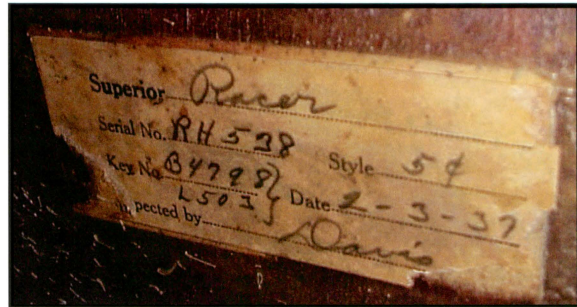 Superior Racer
Serial No. RH 538 Style 5¢
Key No B4798 } Date 2-3-37
L503
pected by Davis